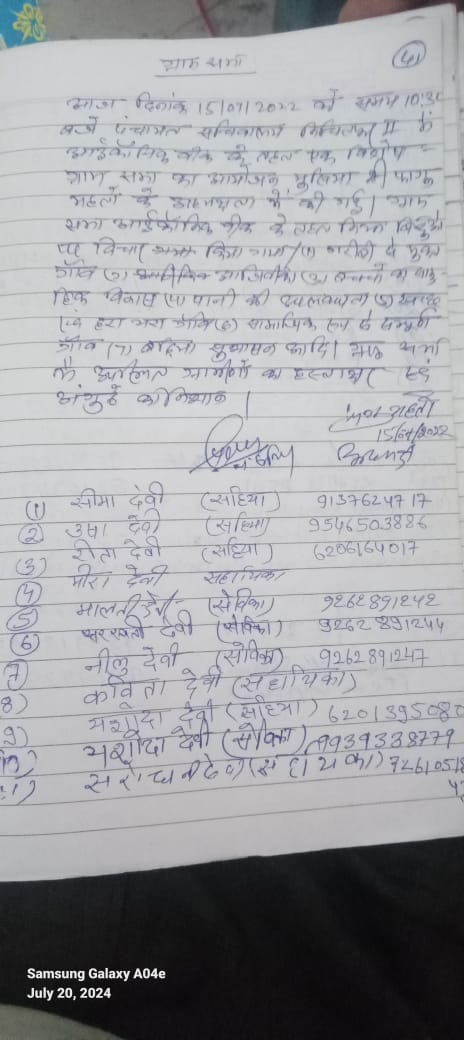 ग्राम सभा
(41)
आज दिनांक 15/07/2022 को समय 10:3
बजे पंचायत सचिवालय II में
आईकॉनिक वीक के तहत एक विशेष
ग्राम सभा का आयोजन मुखिया श्री
महतो के अध्यक्षता में की गई। ग्राम
सभा आईकॉनिक वीक के तहत निम्न बिन्दुओं
पर विचार किया गया। (1) गरीबी से मुक्त
गाँव (2) आजीविका (3) बच्चों का
विकास (4) पानी की उपलब्धता (5) स्वच्छ
एवं हरा भरा गाँव (6) सामाजिक रूप से
गाँव (7) सुशासन आदि। ग्राम सभा
में उपस्थित ग्रामीणों का हस्ताक्षर एवं
अंगुठे का निशान।
महतो
15/07/2022
(1) सीमा देवी (सहिया) 9137624717
(2) उषा देवी (सहिया) 9546503886
(3) गीता देवी (सहिया) 6206164017
(4) मीरा देवी सहायिका
(5) मालती देवी (सेविका) 9262891242
(6) सरस्वती देवी (सेविका) 9262891244
7) नीलु देवी (सेविका) 9262891247
8) कविता देवी (सहायिका)
9) यशोदा देवी (सहिया) 6201395080
यशोदा देवी (सेविका) 9939338779
सरोधनी देवी (सहायका) 7261051
Samsung Galaxy A04e
July 20, 2024